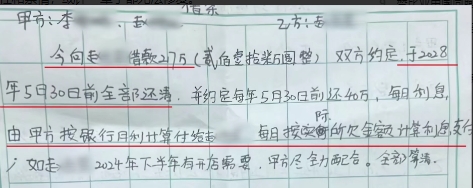 借条
甲方:李 赵 乙方:赵
今向赵 借款275(贰佰 拾 5圆整) 双方约定,于2028
年5月30日前全部还清,并约定每年5月30日前还40万,每月利息,
由甲方按银行月利计算付给赵 每月按实际所欠金额计算利息支付
; 如赵 2024年下半年有开店需要,甲方尽全力配合。全部算清.